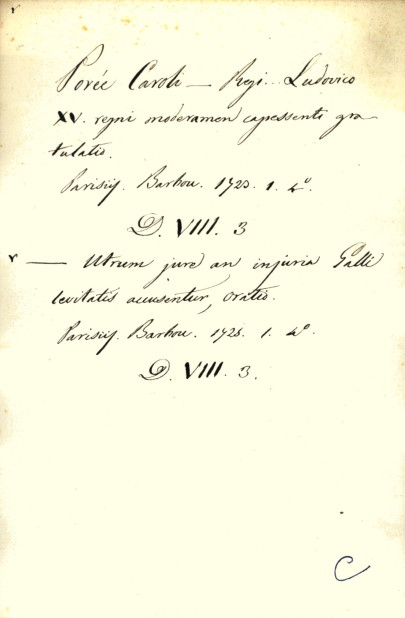 r
Porée Caroli — Regi .. Ludovico
XV. regni moderamen capessenti gra
tulatio.
Parisiis. Barbou. 1723. 1. 4°.
D. VIII. 3
r — Utrum jure an injuria Galli
levitatis accusentur, oratio.
Parisiis. Barbou. 1725. 1. 4°.
D. VIII. 3.
C